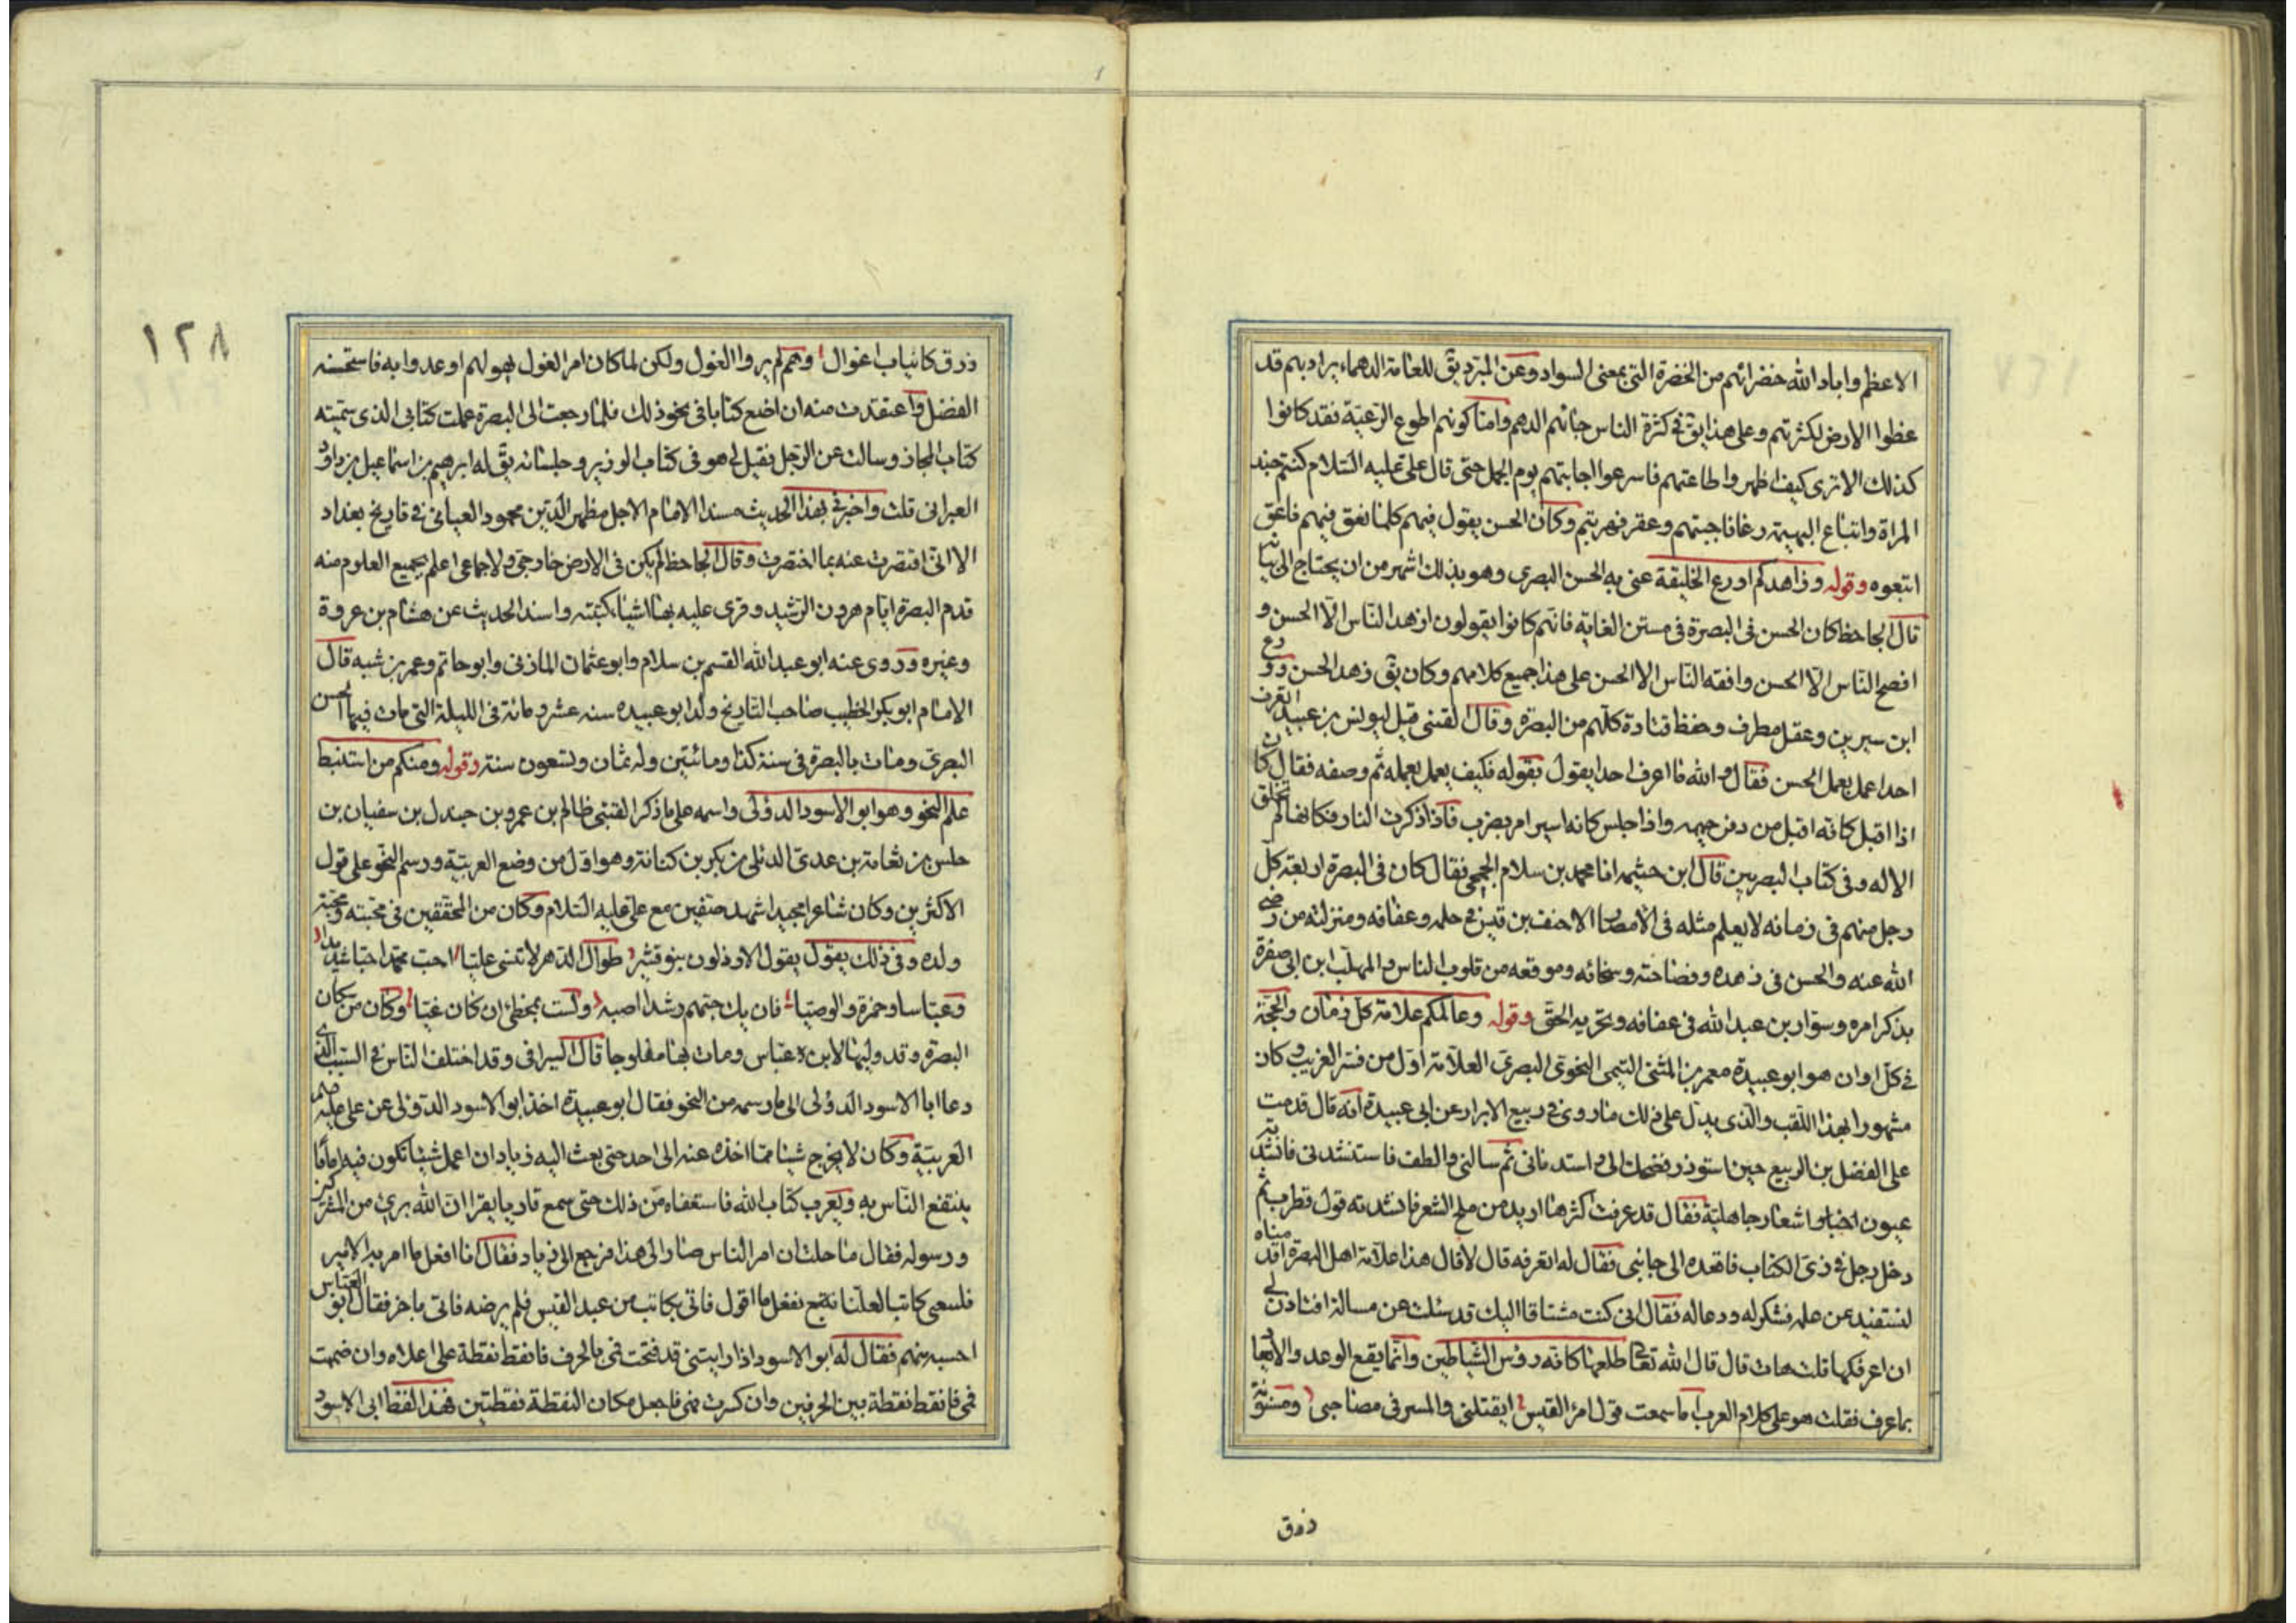 الاعظم واباد الله خضرائهم من الخضرة التى بمعنى السواد وعن المبرد يق للعامة الدهماء يراد بهم قد
غطوا الارض لكثرتهم وعلى هذا يق فى كثرة الناس جائهم الدهم واما كونهم اطوع الرعية فقد كانوا
كذلك الا ترى كيف اظهروا طاعتهم فاسرعوا اجابتهم يوم الجمل حتى قال على عليه السلام كنتم جند
المراة واتباع البهيمة رغا فاجبتم وعقر فهربتم وكان الحسن يقول فيهم كلما نعق فيهم ناعق
اتبعوه وقوله وزاهدكم اورع الخليقة عنى به الحسن البصرى وهو بذلك اشهر من ان يحتاج الى بيانه
قال الجاحظ كان الحسن فى البصرة فى مستن الغاية فانهم كانوا يقولون ازهد الناس الا الحسن و
افصح الناس الا الحسن وافقه الناس الا الحسن على هذا جميع كلامهم وكان يق زهد الحسن وورع
ابن سيرين وعقل مطرف وحفظ قتادة كلهم من البصره وقال القتبى قيل ليونس بن عبيد اتعرف
احدا عمل بعمل الحسن فقال والله ما اعرف احدا يقول بقوله فكيف يعمل بعمله ثم وصفه فقال كان
اذا اقبل كانه اقبل من دفن حميمه واذا جلس كانه اسير امر بضرب فاذا ذكرت النار فكانها لم تخلق
الا له وفى كتاب البصريين قال ابن خيثمه انا محمد بن سلام الجمحى فقال كان فى البصرة اربعة كل
رجل منهم فى زمانه لا يعلم مثله فى الامصار الاحنف بن قيس فى حلمه وعفافه ومنزلته من رضى
الله عنه والحسن فى زهده وفصاحته وسخائه وموقعه من قلوب الناس والمهلب ابن ابى صفرة
بذكر امره وسوار بن عبد الله فى عفافه وتحريه الحق وقوله وعالمكم علامة كل زمان والحجة
فى كل اوان هو ابو عبيدة معمر بن المثنى التيمى النحوى البصرى العلامة اول من فسر الغريب وكان
مشهورا بهذا اللقب والذى يدل على ذلك ما روى فى ربيع الابرار عن ابى عبيدة انه قال قدمت
على الفضل بن الربيع حين استوزر فضحك الى واستدنانى ثم سالنى والطف فاستنشدنى فانشدته
عيون اخبار واشعار جاهلية فقال قد عرفت اكثرها اريد من ملح الشعر فانشدته قول قطرب ثم
دخل رجل فى زى الكتاب فاقعده الى جانبى فقال له اتعرفه قال لا قال هذا علامة اهل البصرة اقدمناه
لنستفيد من علمه فشكر له ودعا له فقال انى كنت مشتاقا اليك قد سئلت عن مسالة افتاذن لى
ان اعرفكها قلت هات قال قال الله تعالى طلعها كانه رؤس الشياطين وانما يقع الوعد والايعاد
بما عرف فقلت هو على كلام العرب اما سمعت قول امرؤ القيس ايقتلنى والمسرفى مضاجى ومسنونة
زرق
١٢٨
زرق كانياب اغوال وهم لم يروا الغول ولكن لما كان امر الغول يهولهم اوعدوا به فاستحسنه
الفضل واعتقدت منه ان اضع كتابا فى نحو ذلك فلما رجعت الى البصرة عملت كتابى الذى سميته
كتاب المجاز وسالت عن الرجل فقيل لى هو فى كتاب الوزير وجلسائه يق له ابرهيم بن اسماعيل بن داود
العبرانى قلت واخبرنى بهذا الحديث مسندا الامام الاجل مظهر الدين محمود العباسى فى تاريخ بغداد
الا انى اقتصرت عنه بما اختصرت وقال الجاحظ لم يكن فى الارض خارجى ولا جماعى اعلم بجميع العلوم منه
قدم البصرة ايام هرون الرشيد وقرى عليه بها اشياء كتبه واسند الحديث عن هشام بن عروة
وغيره وروى عنه ابو عبد الله القسم بن سلام وابو عثمان المازنى وابو حاتم وعمر بن شبه قال
الامام ابو بكر الخطيب صاحب التاريخ ولد ابو عبيده سنه عشر ومائة فى الليلة التى مات فيها الحسن
البصرى ومات بالبصرة فى سنة كذا ومائتين وله ثمان وتسعون سنة وقوله ومنكم من استنبط
علم النحو وهو ابو الاسود الدؤلى واسمه على ما ذكر القتبى ظالم بن عمرو بن جندل بن سفيان بن
حلس بن نفاثة بن عدى الدئلى بن بكر بن كنانة وهو اول من وضع العربية ورسم النحو على قول
الاكثرين وكان شاعرا مجيدا شهد صفين مع على عليه السلام وكان من المحققين فى محبته ومحبة
ولده وفى ذلك يقول يقول الارذلون بنو قشير طوال الدهر لا تنسى عليا احب محمدا حبا شديدا
وعباسا وحمزة والوصيا فان يك حبهم رشدا اصبه ولست بمخطئ ان كان غيا وكان من سكان
البصرة وقد وليها لابن عباس ومات بها مفلوجا قال السيرافى وقد اختلف الناس فى السبب الذى
دعا ابا الاسود الدؤلى الى ما رسمه من النحو فقال ابو عبيدة اخذ ابو الاسود الدؤلى عن على عليه
العربية وكان لا يخرج شيئا مما اخذه عنه الى احد حتى بعث اليه زياد ان اعمل شيئا تكون فيه اماما
ينتفع الناس به ويعرب كتاب الله فاستعفاه من ذلك حتى سمع قاريا يقرا ان الله برئ من المشركين
ورسوله فقال ما خلت ان امر الناس صار الى هذا فرجع الى زياد فقال انا افعل ما امر به الامير
فلسعى كاتبا لعلنا نفعل ما اقول فاتى بكاتب من عبد القيس فلم يرضه فاتى باخر فقال ابو العباس
احسبه منهم فقال له ابو الاسود اذا رايتنى قد فتحت فمى بالحرف فانقط نقطة على اعلاه وان ضممت
فمى فانقط نقطة بين الحرفين وان كسرت فمى فاجعل مكان النقطة نقطتين فهذا نقط ابى الاسود